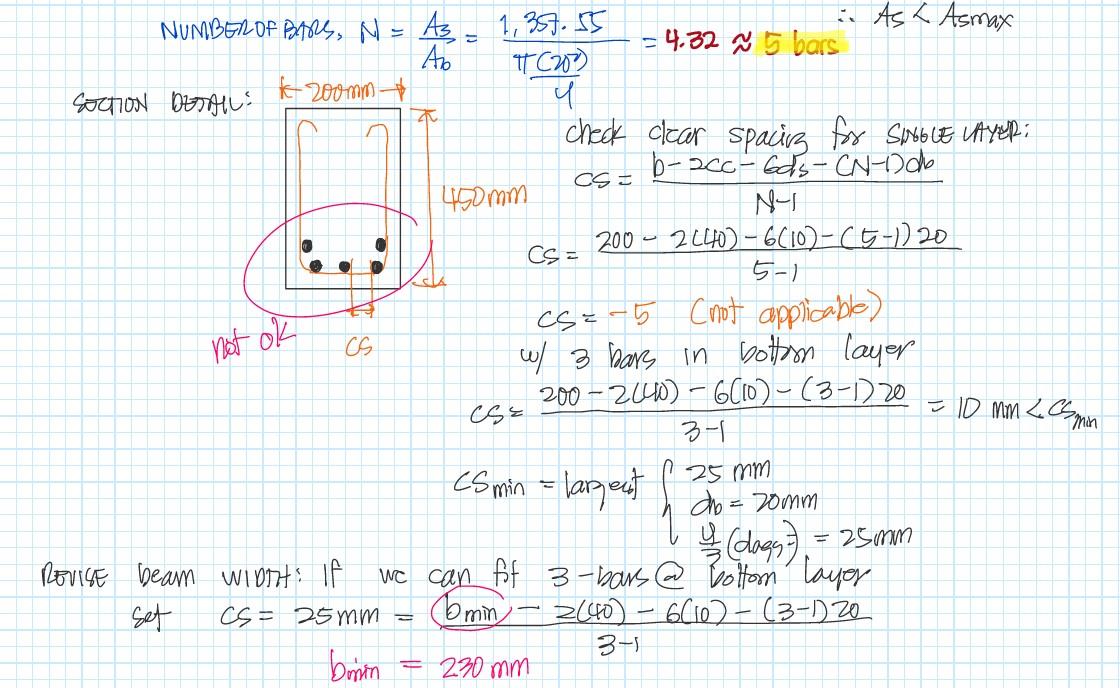 NUMBER OF BARS, N = As/Ab = 1,357.55 / (π(20²)/4) = 4.32 ≈ 5 bars
∴ As < Asmax
SECTION DETAIL:
200mm
450mm
not ok
CS
check clear spacing for SINGLE LAYER:
CS = (b - 2CC - 6ds - (N-1)db) / (N-1)
CS = (200 - 2(40) - 6(10) - (5-1)20) / (5-1)
CS = -5 (not applicable)
w/ 3 bars in bottom layer
CS = (200 - 2(40) - 6(10) - (3-1)20) / (3-1) = 10 mm < CSmin
CSmin = largest { 25 mm
db = 20mm
4/3 (dagg) = 25mm
REVISE beam WIDTH: If we can fit 3-bars @ bottom layer
set CS = 25mm = (bmin - 2(40) - 6(10) - (3-1)20) / (3-1)
bmin = 230 mm